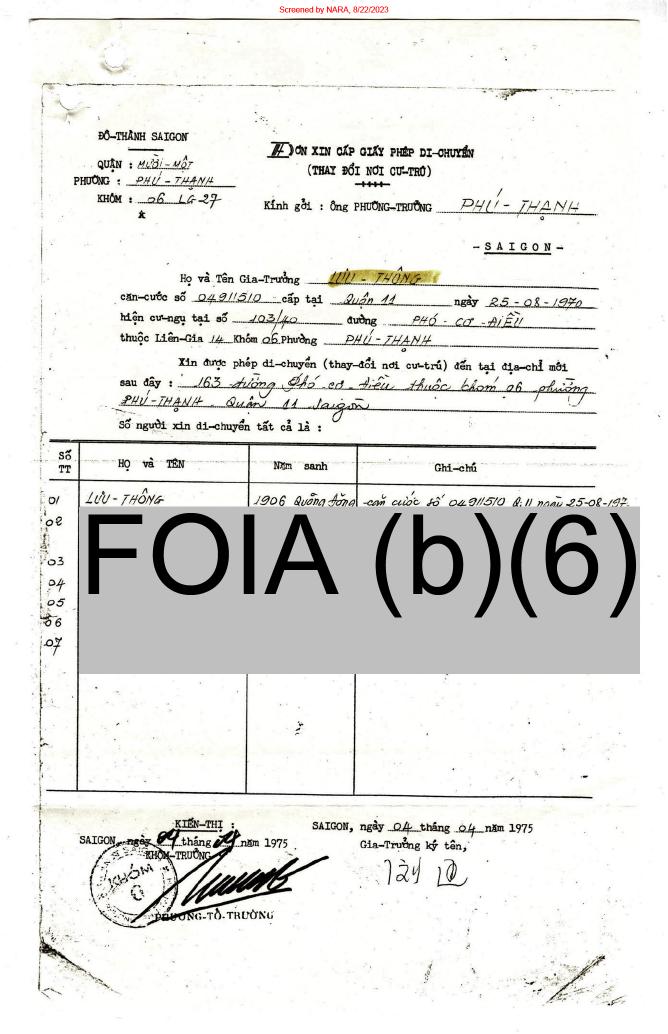 Screened by NARA, 8/22/2023
ĐÔ-THÀNH SAIGON
QUẬN : MƯỜI-MỘT
PHƯỜNG : PHÚ-THẠNH
KHÓM : 06 LG 27
ĐƠN XIN CẤP GIẤY PHÉP DI-CHUYỂN
(THAY ĐỔI NƠI CƯ-TRÚ)
Kính gởi : Ông PHƯỜNG-TRƯỞNG PHÚ-THẠNH
-SAIGON-
Họ và Tên Gia-Trưởng LƯU-THÔNG
căn-cước số 04911510 cấp tại Quận 11 ngày 25-08-1970
hiện cư-ngụ tại số 103/40 đường PHÓ-CƠ-ĐIỀU
thuộc Liên-Gia 14 Khóm 06 Phường PHÚ-THẠNH
Xin được phép di-chuyển (thay-đổi nơi cư-trú) đến tại địa-chỉ mới
sau đây : 163 đường Phó cơ điều thuộc khóm 06 phường
PHÚ-THẠNH Quận 11 Saigòn
Số người xin di-chuyển tất cả là :
Số TT HỌ và TÊN Năm sanh Ghi-chú
01 LƯU-THÔNG 1906 Quảng Đông -căn cước số 04911510 Q.11 ngày 25-08-197
02
FOIA (b)(6)
03
04
05
06
07
KIẾN-THỊ :
SAIGON, ngày 04 tháng 04 năm 1975
KHÓM-TRƯỞNG
PHƯỜNG-TÔ-TRƯỜNG
SAIGON, ngày 04 tháng 04 năm 1975
Gia-Trưởng ký tên,